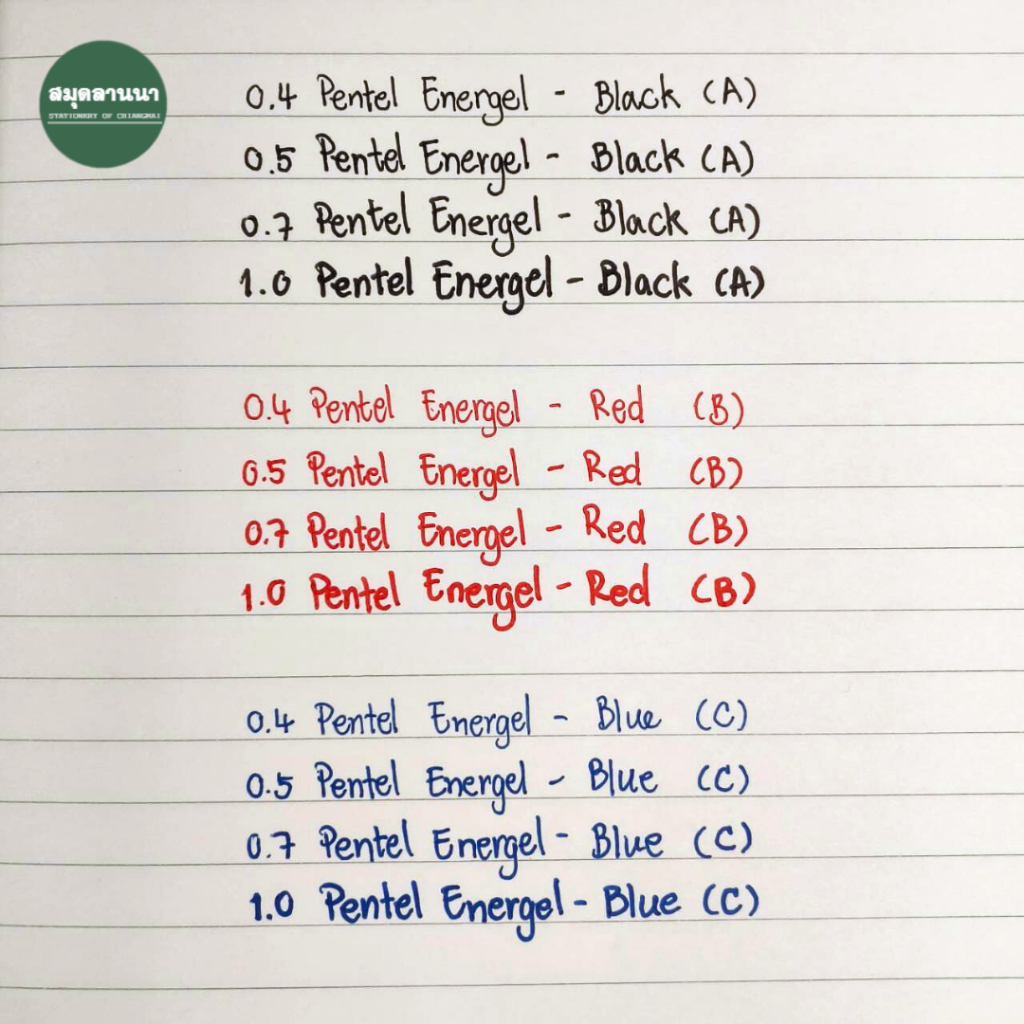 สมุดลานนา
STATIONERY OF CHIANGMAI
0.4 Pentel Energel - Black (A)
0.5 Pentel Energel - Black (A)
0.7 Pentel Energel - Black (A)
1.0 Pentel Energel - Black (A)
0.4 Pentel Energel - Red (B)
0.5 Pentel Energel - Red (B)
0.7 Pentel Energel - Red (B)
1.0 Pentel Energel - Red (B)
0.4 Pentel Energel - Blue (C)
0.5 Pentel Energel - Blue (C)
0.7 Pentel Energel - Blue (C)
1.0 Pentel Energel - Blue (C)